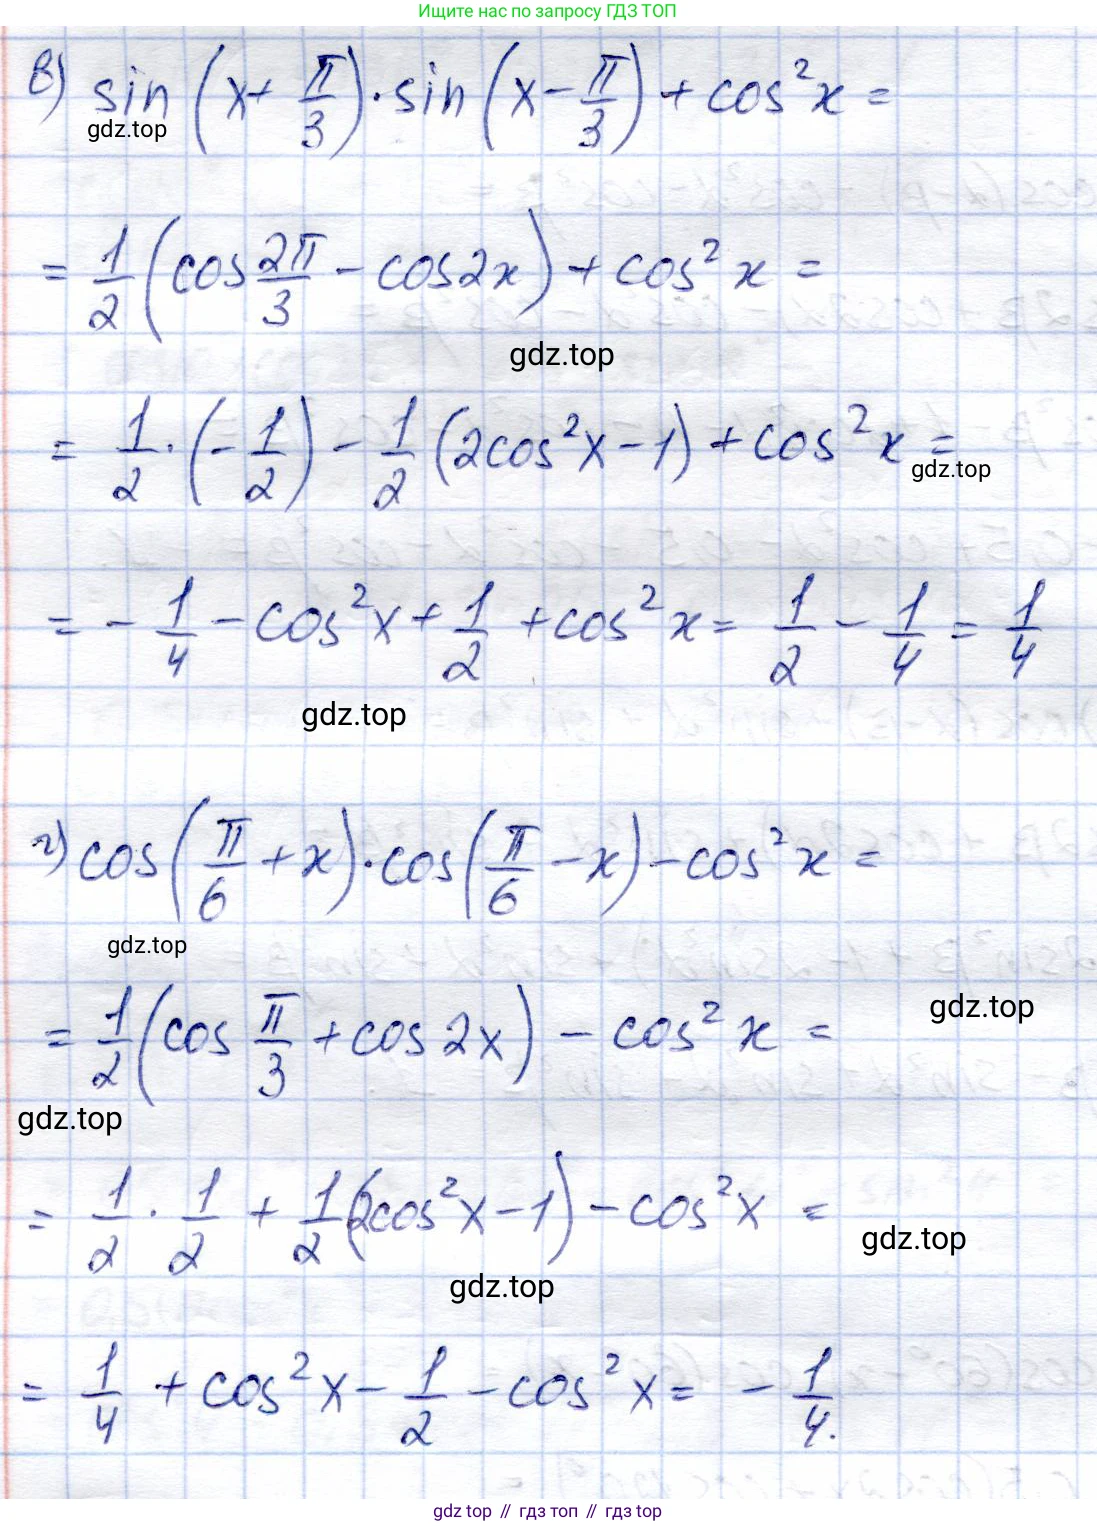 Ищите нас по запросу ГДЗ ТОП
в) sin (x + π/3) · sin (x - π/3) + cos² x =
gdz.top
= 1/2 (cos 2π/3 - cos 2x) + cos² x =
gdz.top
= 1/2 · (-1/2) - 1/2 (2cos² x - 1) + cos² x =
gdz.top
= - 1/4 - cos² x + 1/2 + cos² x = 1/2 - 1/4 = 1/4
gdz.top
г) cos (π/6 + x) · cos (π/6 - x) - cos² x =
gdz.top
= 1/2 (cos π/3 + cos 2x) - cos² x =
gdz.top
gdz.top
= 1/2 · 1/2 + 1/2 (2cos² x - 1) - cos² x =
gdz.top
gdz.top
= 1/4 + cos² x - 1/2 - cos² x = - 1/4.
gdz top // гдз топ // gdz top